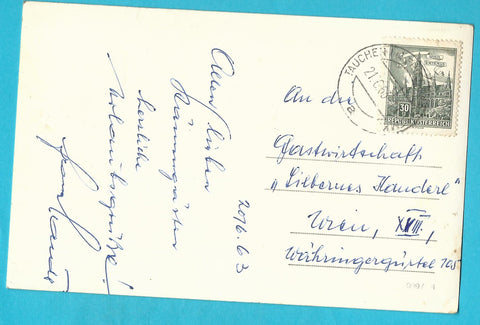 20/6.63
Allen lieben
Stammgästen
herzliche
Urlaubsgrüße!
TAUCHEN
21.6.
30
REPUBLIK ÖSTERREICH
An die
Gastwirtschaft
„Silbernes Kanderl"
Wien, XVIII.,
Währingergürtel 105